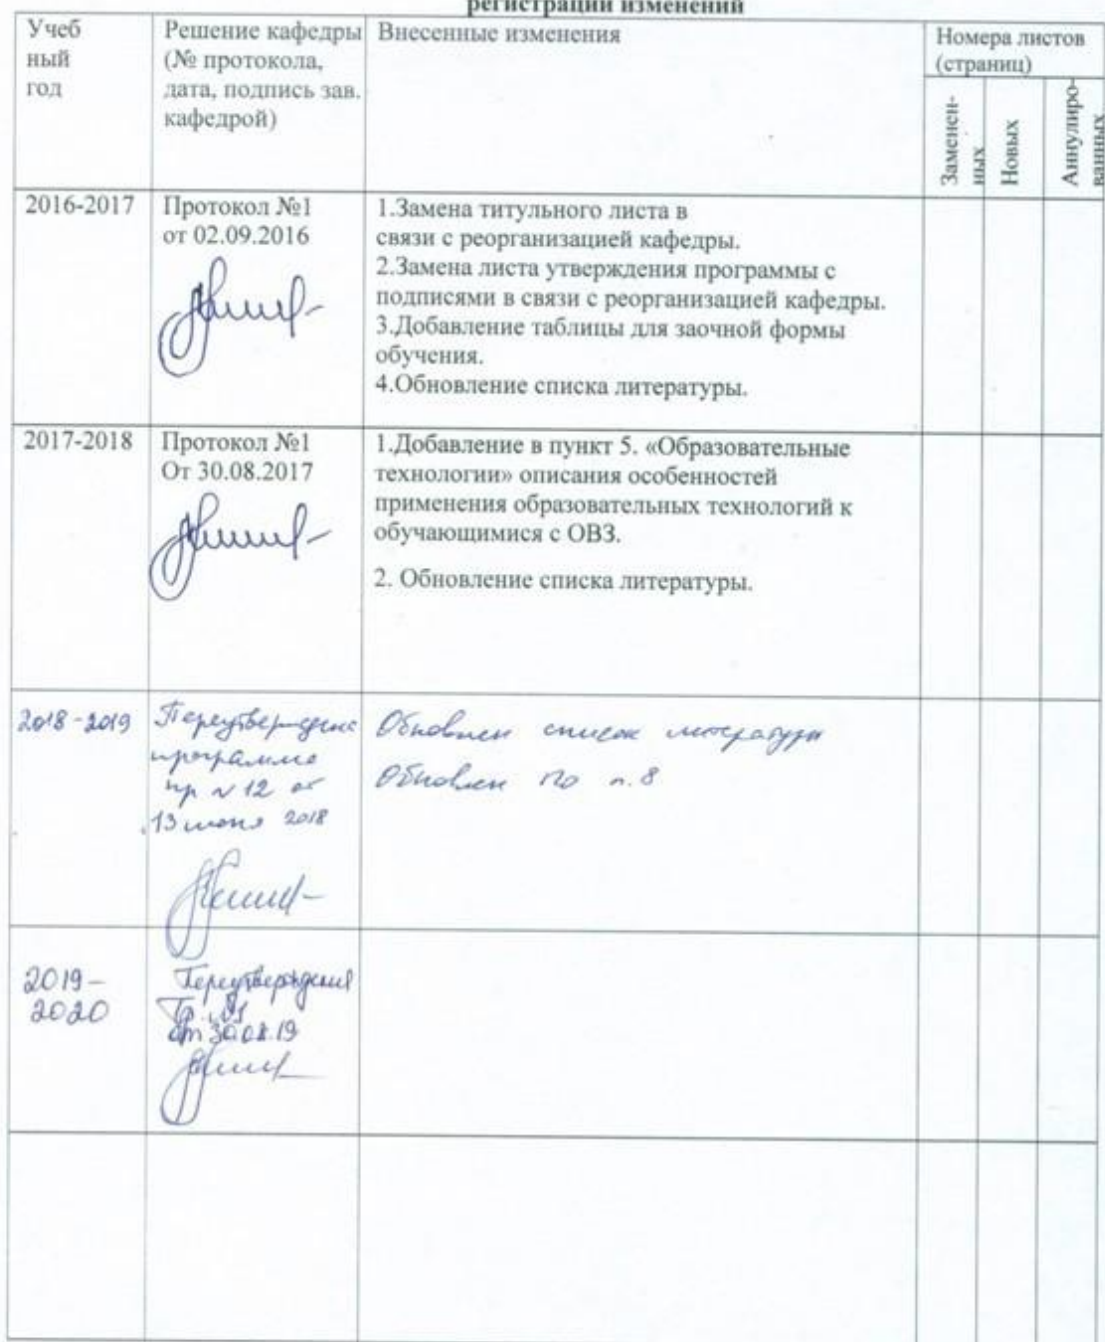 регистрации изменений
Учеб
ный
год
Решение кафедры
(№ протокола,
дата, подпись зав.
кафедрой)
Внесенные изменения
Номера листов
(страниц)
Заменен-
ных
Новых
Аннулиро-
ванных
2016-2017
Протокол №1
от 02.09.2016
1.Замена титульного листа в
связи с реорганизацией кафедры.
2.Замена листа утверждения программы с
подписями в связи с реорганизацией кафедры.
3.Добавление таблицы для заочной формы
обучения.
4.Обновление списка литературы.
2017-2018
Протокол №1
От 30.08.2017
1.Добавление в пункт 5. «Образовательные
технологии» описания особенностей
применения образовательных технологий к
обучающимися с ОВЗ.
2. Обновление списка литературы.
2018-2019
Переутверждена
программа
пр №12 от
13 июня 2018
Обновлен список литературы
Обновлен ПО п.8
2019-
2020
Переутверждена
Пр. №1
от 30.08.19